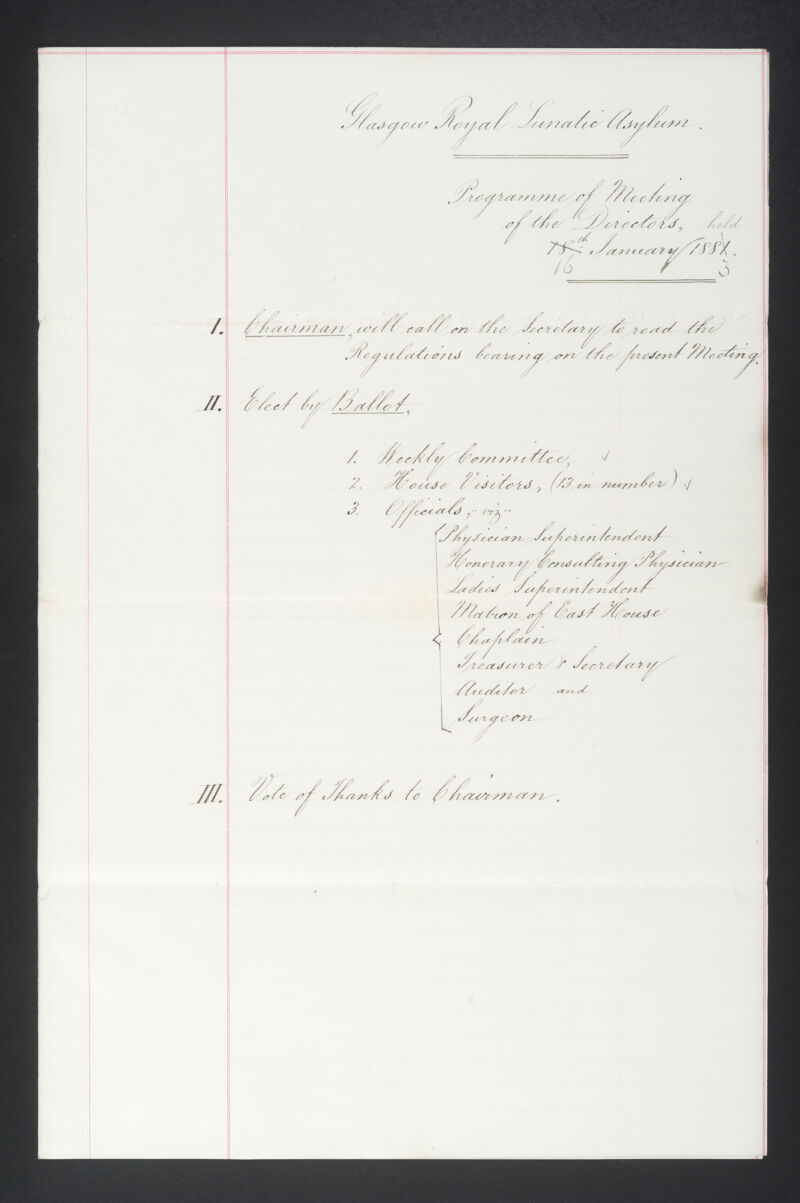 Glasgow Royal Lunatic Asylum.
Programme of Meeting
of the Directors, held
18th January 1881.
16 5
I. Chairman, will call on the Secretary to read the
Regulations bearing on the present Meeting.
II. Elect by Ballot,
1. Weekly Committee,
2. House Visitors, (13 in number)
3. Officials, - viz -
Physician Superintendent
Honorary Consulting Physician
Ladies Superintendent
Matron of East House
Chaplain
Treasurer & Secretary
Auditor and
Surgeon
III. Vote of Thanks to Chairman.